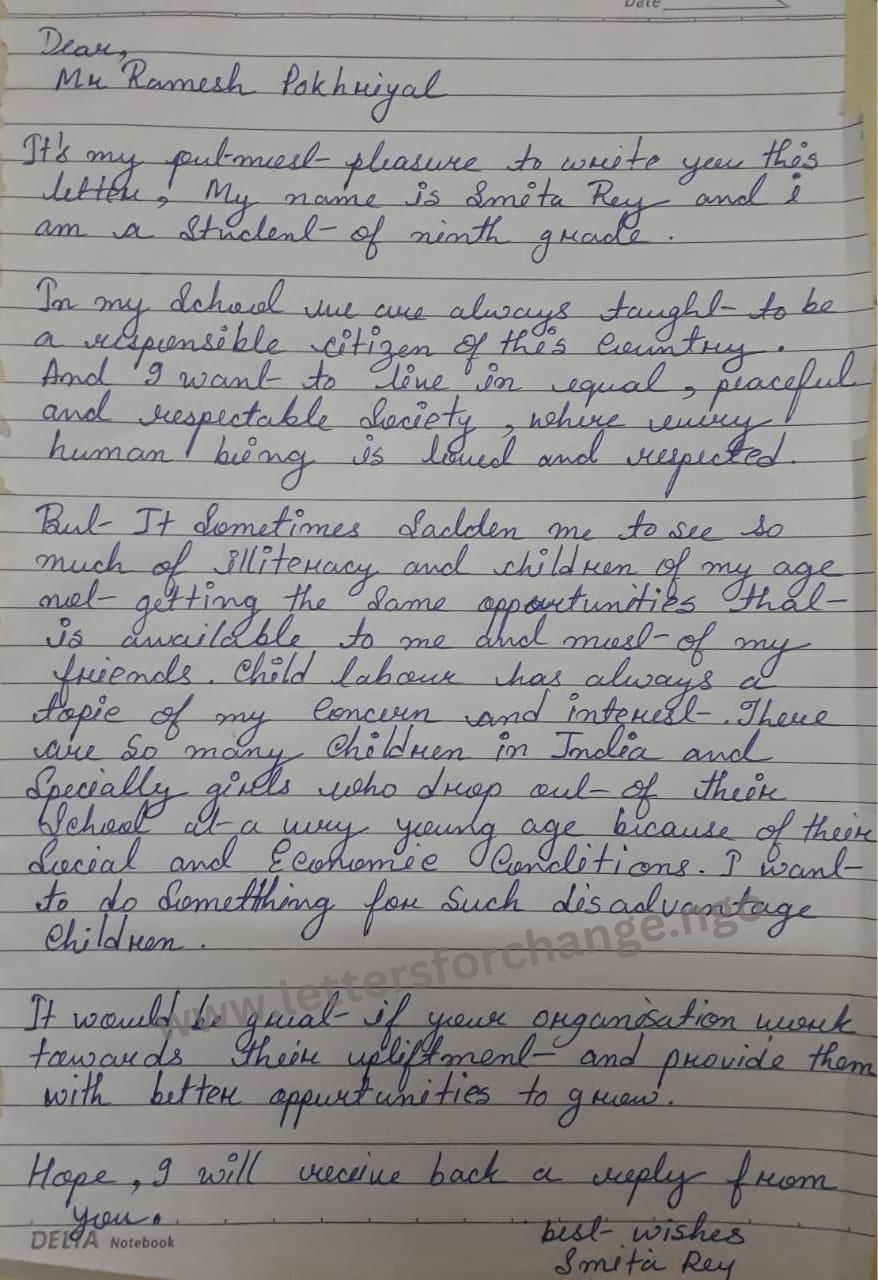 Date
Dear,
Mr Ramesh Pokhriyal
It's my outmost pleasure to write you this
letter, My name is Smita Rey and i
am a Student of ninth grade.
In my School we are always taught to be
a responsible citizen of this Country.
And I want to live in equal, peaceful
and respectable Society, where every
human being is loved and respected.
But It Sometimes Sadden me to see so
much of illiteracy and children of my age
not getting the Same opportunities that
is available to me and most of my
friends. Child labour has always a
topic of my Concern and interest. There
are So many Children in India and
Specially girls who drop out of their
School at a very young age bicause of their
Social and Economic Conditions. I want
to do Sometthing for Such disadvantage
Children.
www.lettersforchange.ngo
It would be great if your organisation work
towards their upliftment and provide them
with better oppurtunities to grow.
Hope, I will receive back a reply from
you.
DELTA Notebook
best wishes
Smita Rey